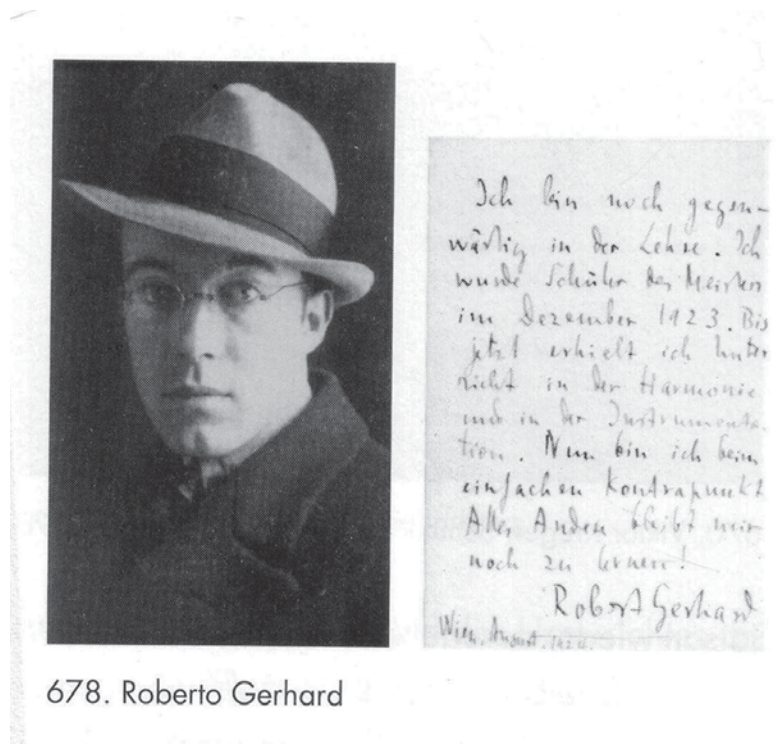 Ich bin noch gegen-
wärtig in der Lehre. Ich
wurde Schüler des Meisters
im Dezember 1923. Bis
jetzt erhielt ich Unter
richt in der Harmonie
und in der Instrumenta-
tion. Nun bin ich beim
einfachen Kontrapunkt
Alles Andere bleibt mir
noch zu lernen!
Robert Gerhard
Wien, August. 1924.
678. Roberto Gerhard